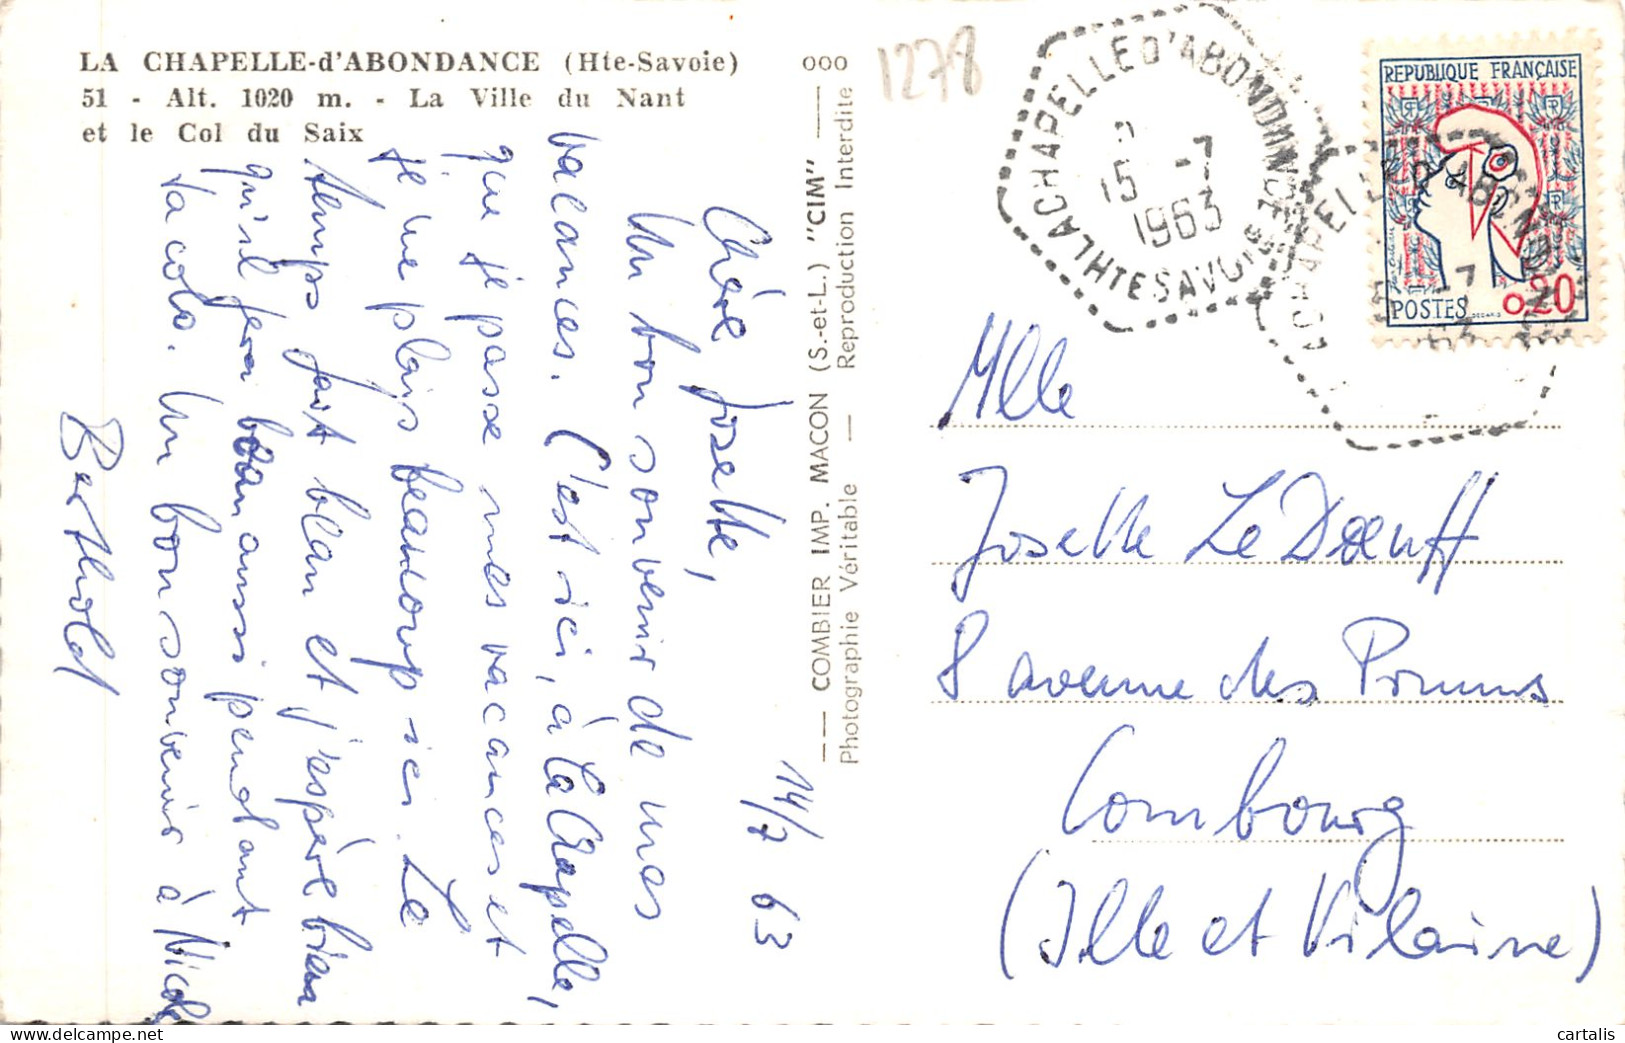 LA CHAPELLE-d'ABONDANCE (Hte-Savoie)
51 - Alt. 1020 m. - La Ville du Nant
et le Col du Saix
000
1278
14/7 63
Chère Josette,
Un bon souvenir de mes
vacances. C'est ici, à La Chapelle,
que je passe mes vacances et
je me plais beaucoup ici. Le
temps fait bean et j'espère bien
qu'il fera bean aussi pendant
ta colo. Un bon souvenir à Nicole
Berthold
COMBIER IMP. MACON (S.-et-L.) "CIM"
Photographie Véritable — Reproduction Interdite
LA CHAPELLE D'ABONDANCE
HTE SAVOIE
15 -7
1963
REPUBLIQUE FRANÇAISE
POSTES 0,20
DECARIS
Mlle
Josette Le Dœuff
8 avenue des Prunus
Combourg
(Ille et Vilaine)
cartalis